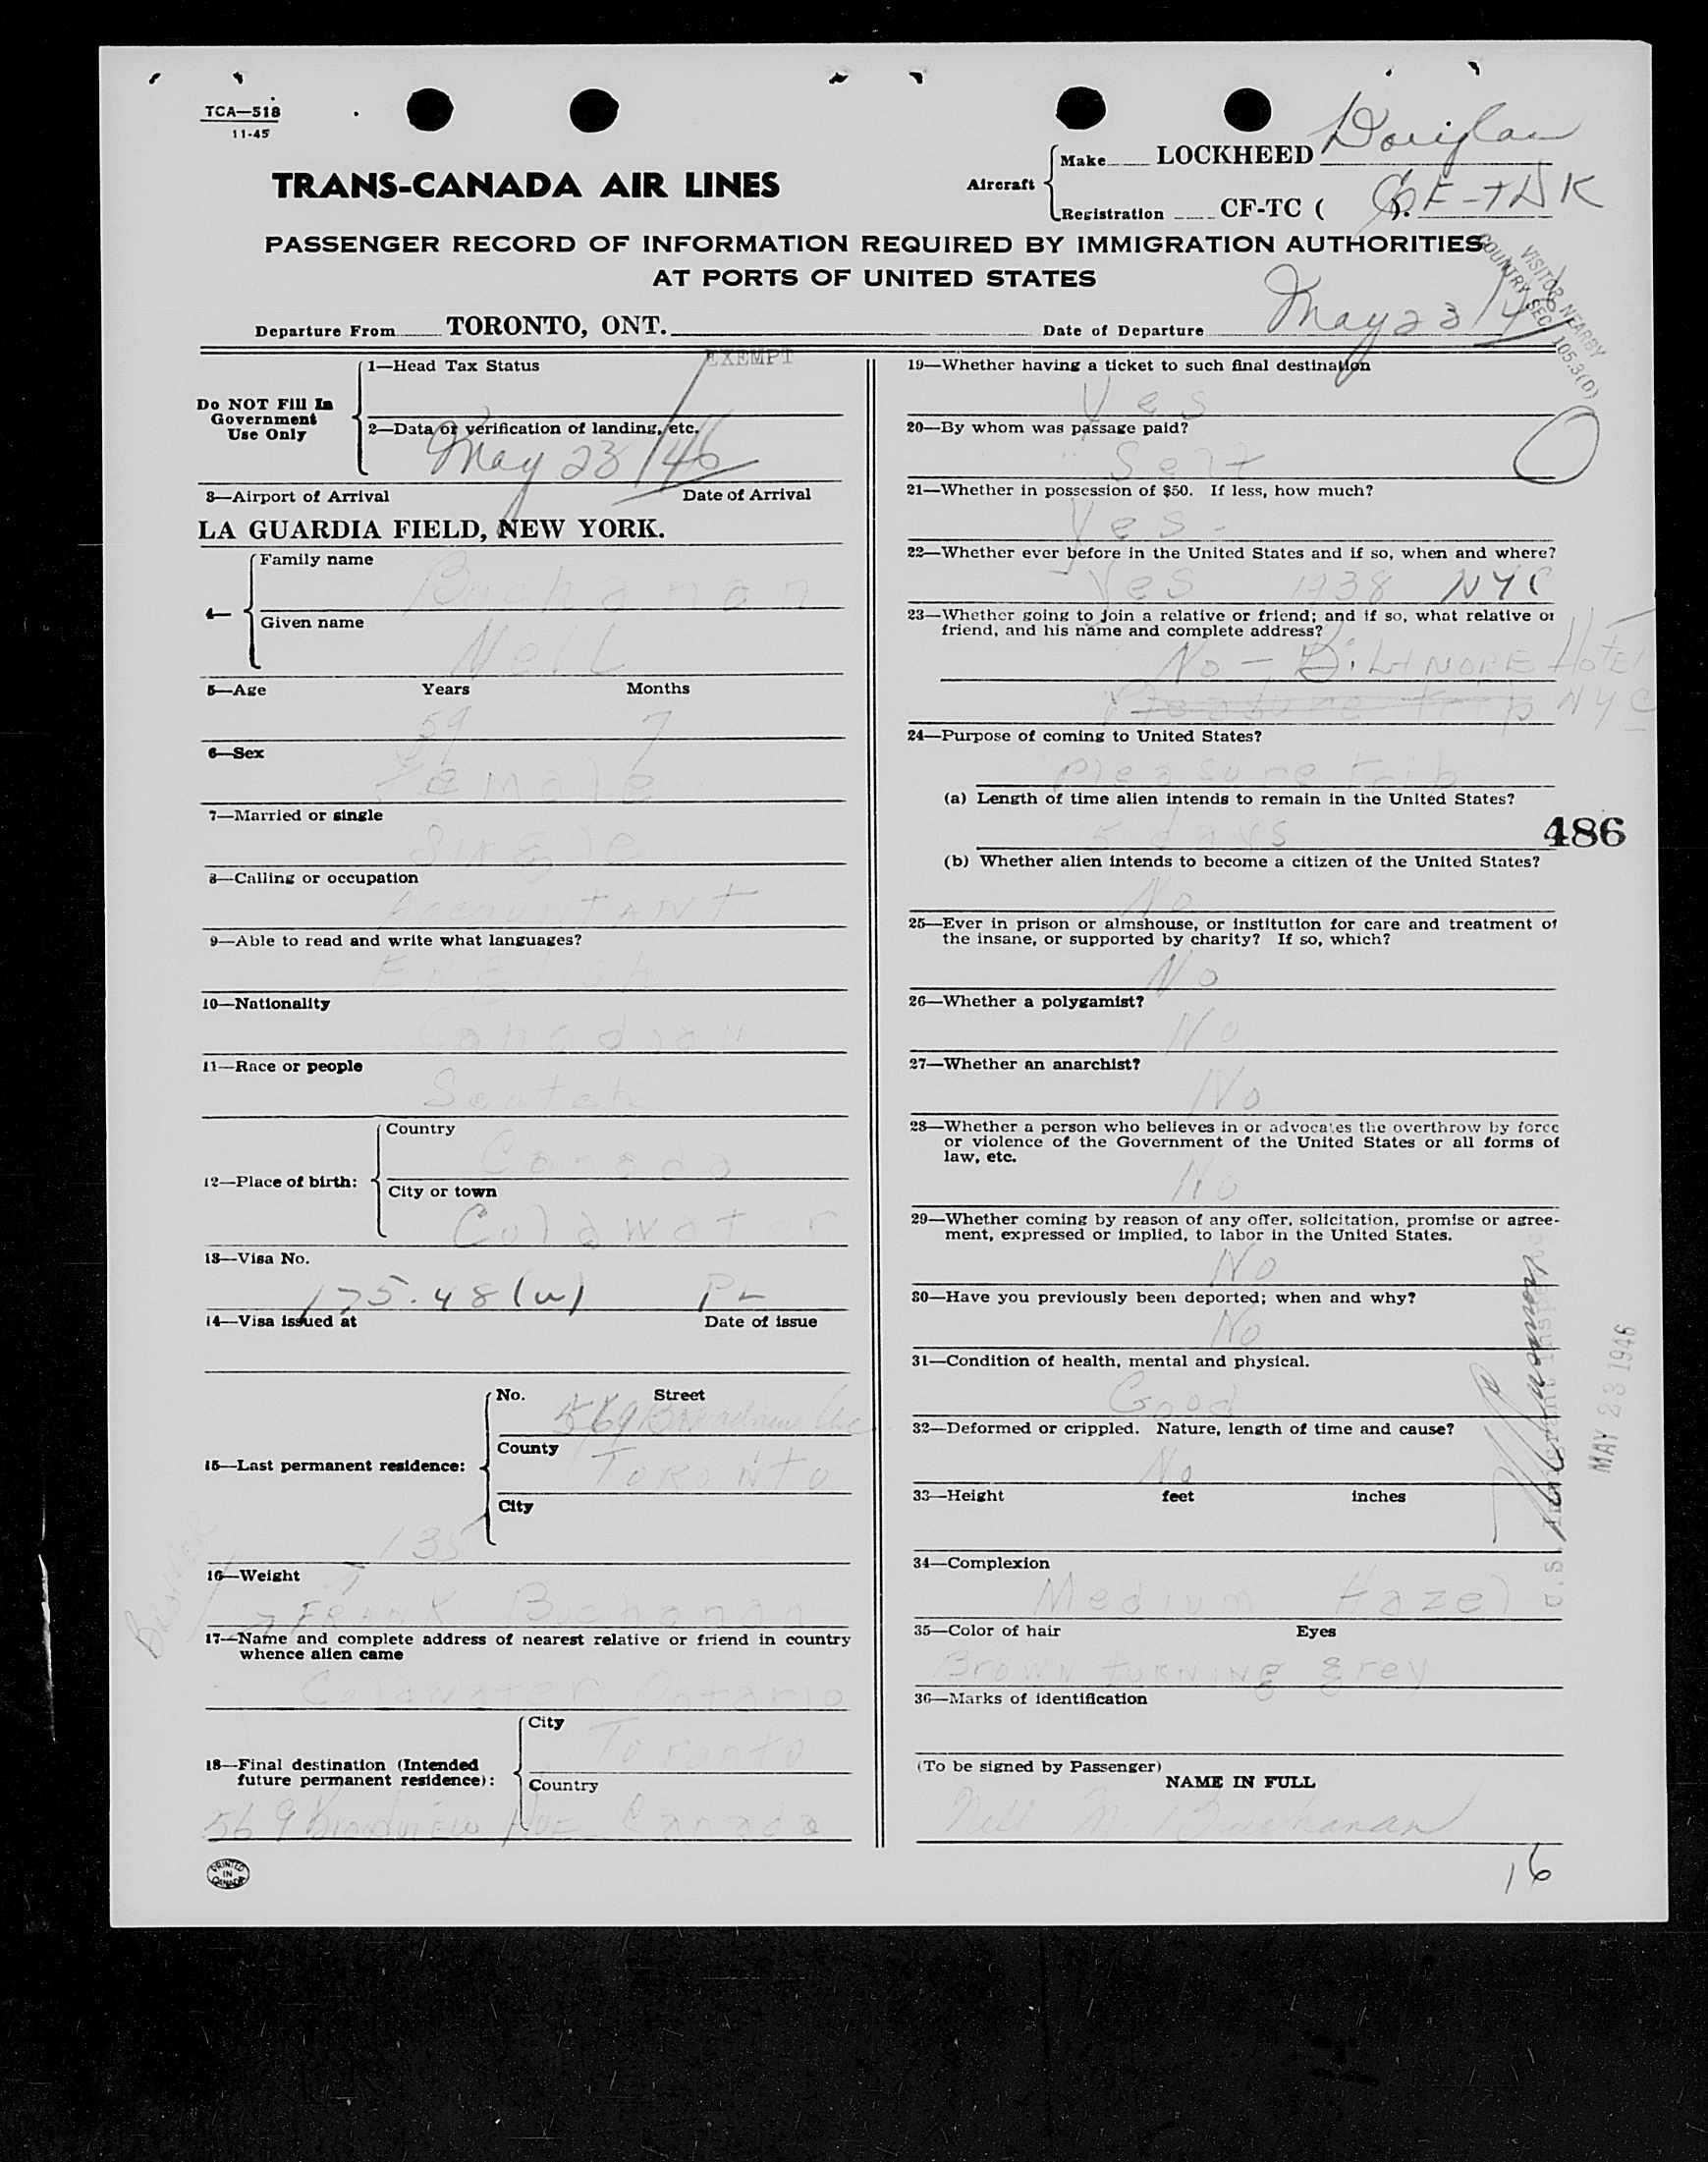 TCA—518
11-45
TRANS-CANADA AIR LINES
Aircraft
Make LOCKHEED Douglas
Registration CF-TC ( ). CF-TDK
PASSENGER RECORD OF INFORMATION REQUIRED BY IMMIGRATION AUTHORITIES
AT PORTS OF UNITED STATES
VISITOR NEARBY
COUNTRY SEC. 105.3(D)
Departure From TORONTO, ONT.
Date of Departure May 23/46
Do NOT Fill In
Government
Use Only
1—Head Tax Status
EXEMPT
2—Data or verification of landing, etc.
May 23/46
3—Airport of Arrival Date of Arrival
LA GUARDIA FIELD, NEW YORK.
4—
Family name
Buchanan
Given name
Nell
5—Age Years Months
59 7
6—Sex
Female
7—Married or single
Single
8—Calling or occupation
Accountant
9—Able to read and write what languages?
English
10—Nationality
Canadian
11—Race or people
Scotch
12—Place of birth:
Country
Canada
City or town
Coldwater
13—Visa No.
175.48(w)
14—Visa issued at Date of issue
15—Last permanent residence:
No. Street
569 Broadview Ave
County
TORONTO
City
135
16—Weight
FRANK Buchanan
17—Name and complete address of nearest relative or friend in country
whence alien came
Coldwater Ontario
18—Final destination (Intended
future permanent residence):
City
Toronto
Country
569 Broadview AVE Canada
PRINTED
IN
CANADA
19—Whether having a ticket to such final destination
Yes
20—By whom was passage paid?
Self
21—Whether in possession of $50. If less, how much?
Yes -
22—Whether ever before in the United States and if so, when and where?
Yes 1938 NYC
23—Whether going to join a relative or friend; and if so, what relative or
friend, and his name and complete address?
No - BILTMORE HOTEL
Pleasure trip NYC
24—Purpose of coming to United States?
Pleasure trip
(a) Length of time alien intends to remain in the United States?
5 days
486
(b) Whether alien intends to become a citizen of the United States?
No
25—Ever in prison or almshouse, or institution for care and treatment of
the insane, or supported by charity? If so, which?
No
26—Whether a polygamist?
No
27—Whether an anarchist?
No
28—Whether a person who believes in or advocates the overthrow by force
or violence of the Government of the United States or all forms of
law, etc.
No
29—Whether coming by reason of any offer, solicitation, promise or agree-
ment, expressed or implied, to labor in the United States.
No
30—Have you previously been deported; when and why?
No
31—Condition of health, mental and physical.
Good
32—Deformed or crippled. Nature, length of time and cause?
No
33—Height feet inches
34—Complexion
Medium Hazel
35—Color of hair Eyes
Brown TURNING grey
36—Marks of identification
(To be signed by Passenger)
NAME IN FULL
Nell M Buchanan
16
U.S. Immigrant Inspector
MAY 23 1946